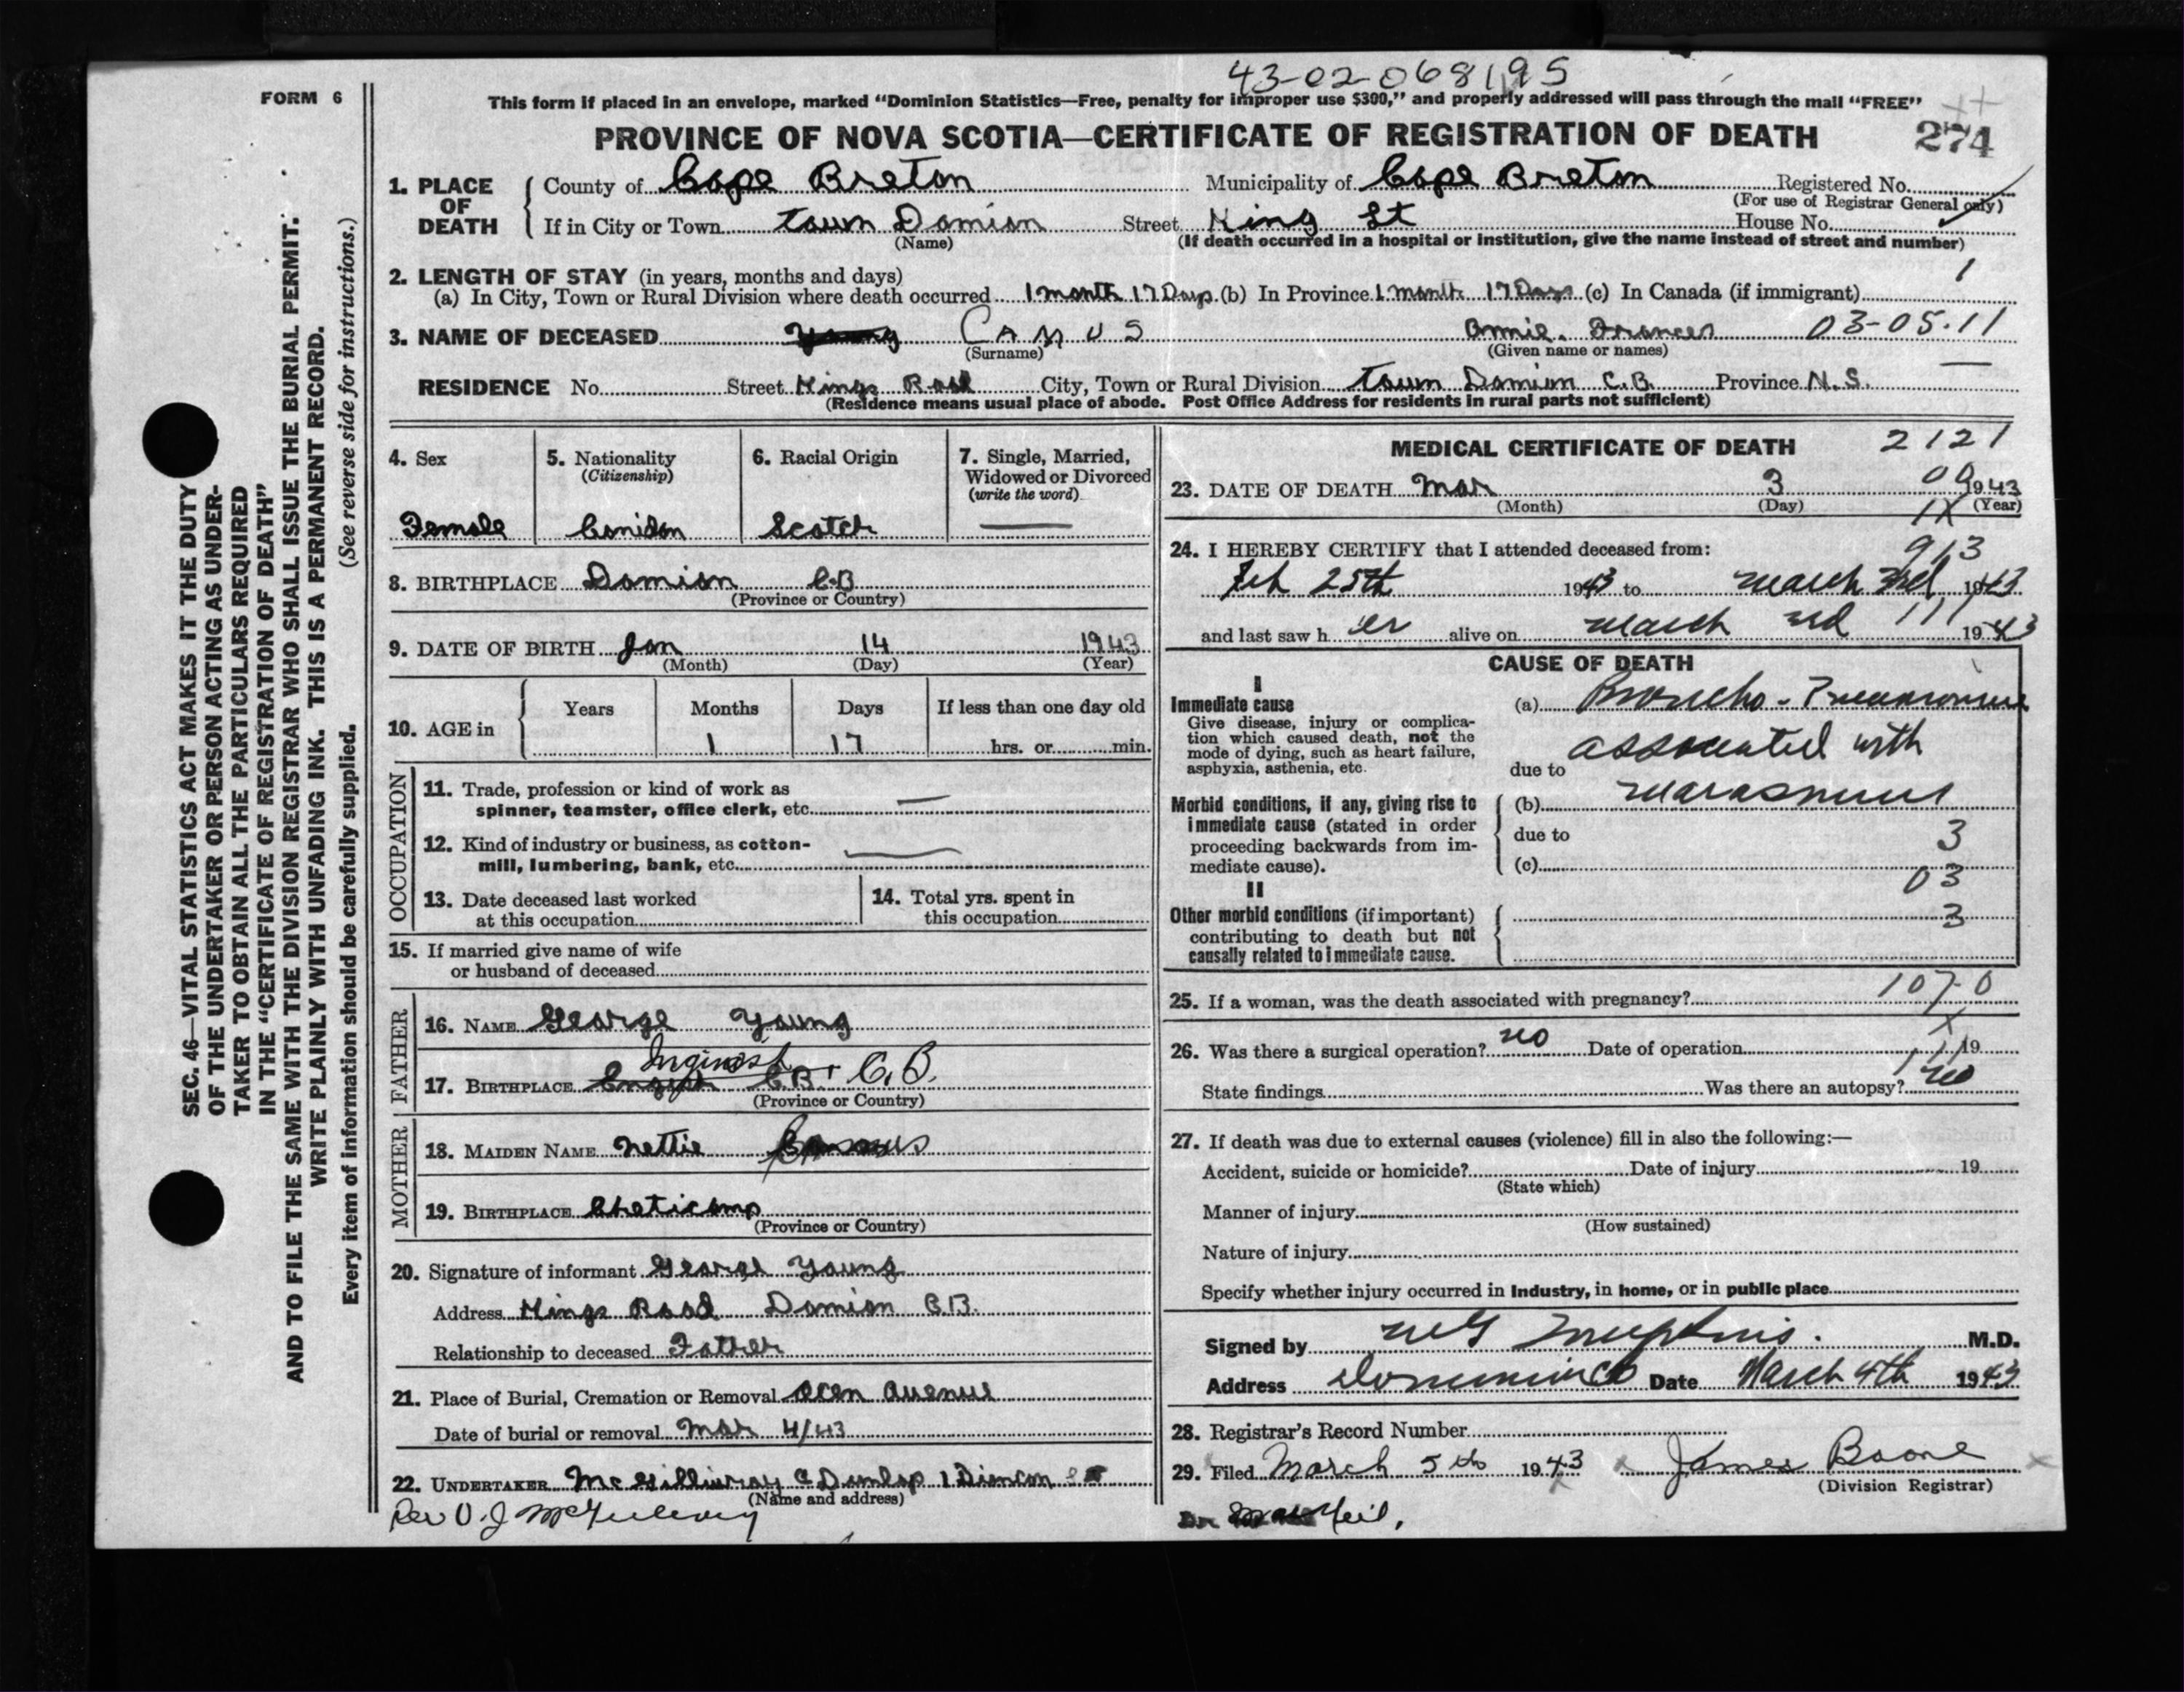 43-02-068195
FORM 6
This form if placed in an envelope, marked "Dominion Statistics—Free, penalty for improper use $300," and properly addressed will pass through the mail "FREE"
PROVINCE OF NOVA SCOTIA—CERTIFICATE OF REGISTRATION OF DEATH 274
1. PLACE OF DEATH { County of Cape Breton Municipality of Cape Breton Registered No.
(For use of Registrar General only)
If in City or Town Town Domion Street King St House No.
(Name) (If death occurred in a hospital or institution, give the name instead of street and number)
2. LENGTH OF STAY (in years, months and days) 1
(a) In City, Town or Rural Division where death occurred 1 month 17 Days (b) In Province 1 month 17 Days (c) In Canada (if immigrant)
3. NAME OF DECEASED Young Camus Annie Frances 03-05-11
(Surname) (Given name or names)
RESIDENCE No. Street Kings Road City, Town or Rural Division Town Domion C.B. Province N.S.
(Residence means usual place of abode. Post Office Address for residents in rural parts not sufficient)
SEC. 46—VITAL STATISTICS ACT MAKES IT THE DUTY
OF THE UNDERTAKER OR PERSON ACTING AS UNDER-
TAKER TO OBTAIN ALL THE PARTICULARS REQUIRED
IN THE "CERTIFICATE OF REGISTRATION OF DEATH"
AND TO FILE THE SAME WITH THE DIVISION REGISTRAR WHO SHALL ISSUE THE BURIAL PERMIT.
WRITE PLAINLY WITH UNFADING INK. THIS IS A PERMANENT RECORD.
Every item of information should be carefully supplied. (See reverse side for instructions.)
4. Sex 5. Nationality 6. Racial Origin 7. Single, Married,
(Citizenship) Widowed or Divorced
(write the word)
Female Conidon Scotch —
8. BIRTHPLACE Domion C.B
(Province or Country)
9. DATE OF BIRTH Jan 14 1943
(Month) (Day) (Year)
10. AGE in { Years Months Days If less than one day old
1 17 hrs. or min.
OCCUPATION
11. Trade, profession or kind of work as
spinner, teamster, office clerk, etc. —
12. Kind of industry or business, as cotton-
mill, lumbering, bank, etc. —
13. Date deceased last worked 14. Total yrs. spent in
at this occupation this occupation
15. If married give name of wife
or husband of deceased
FATHER
16. NAME George Young
Inginish
17. BIRTHPLACE C.B. C.B.
(Province or Country)
MOTHER
18. MAIDEN NAME Nettie
19. BIRTHPLACE Cheticamp
(Province or Country)
20. Signature of informant George Young
Address Kings Road Domion C.B.
Relationship to deceased Father
21. Place of Burial, Cremation or Removal Ocen Avenue
Date of burial or removal Mar 4/43
22. UNDERTAKER McGillivray & Dunlop
(Name and address)
Rev O. J.
MEDICAL CERTIFICATE OF DEATH 2121
23. DATE OF DEATH Mar 3 00 1943
(Month) (Day) 1X (Year)
24. I HEREBY CERTIFY that I attended deceased from: 913
Feb 25th 1943 to March 3rd 1943
and last saw h er alive on March 3rd 111 1943
CAUSE OF DEATH
I
Immediate cause (a) Broncho-Pneumonia
Give disease, injury or complica-
tion which caused death, not the
mode of dying, such as heart failure,
asphyxia, asthenia, etc.
associated with
due to
Morbid conditions, if any, giving rise to
immediate cause (stated in order
proceeding backwards from im-
mediate cause).
(b) marasmus
due to 3
(c) 03
II
Other morbid conditions (if important) 3
contributing to death but not
causally related to immediate cause.
25. If a woman, was the death associated with pregnancy? 107-0
X
26. Was there a surgical operation? no Date of operation 19
State findings Was there an autopsy? no
27. If death was due to external causes (violence) fill in also the following:—
Accident, suicide or homicide? Date of injury 19
(State which)
Manner of injury
(How sustained)
Nature of injury
Specify whether injury occurred in Industry, in home, or in public place
Signed by M.D.
Address Date March 4th 1943
28. Registrar's Record Number
29. Filed March 5th 1943 James Boone
(Division Registrar)
Dr